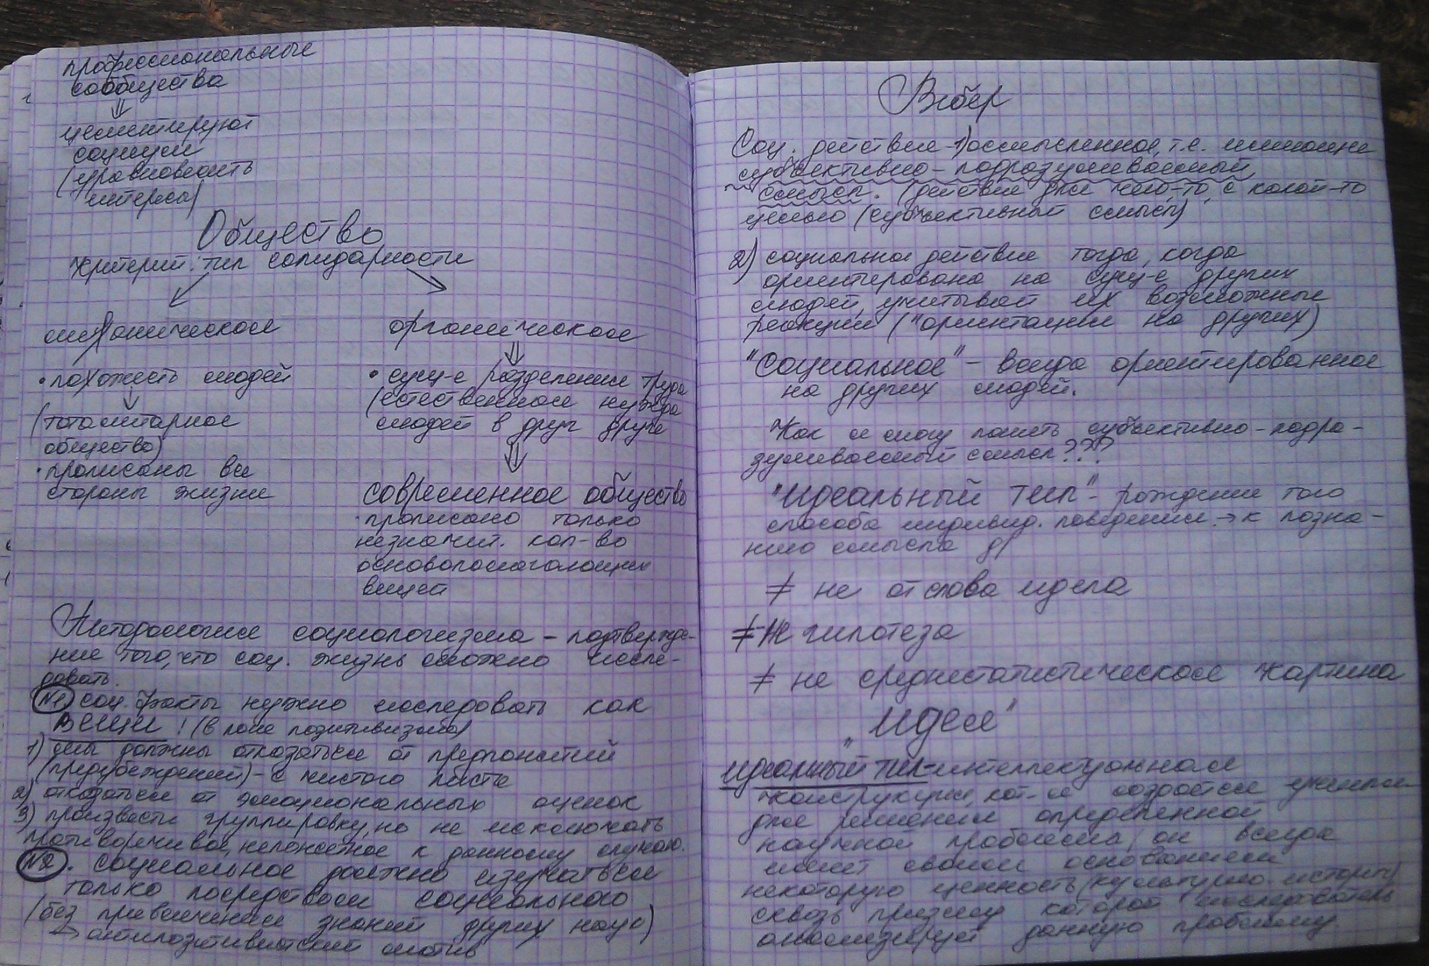 профессиональные
сообщества
цементируют
социум
(уравновесить
интересы)
Общество
Критерий: тип солидарности
механическое
органическое
• похожесть людей
(тоталитарное
общество)
• прописаны все
стороны жизни
• сущ-е разделения труда
(естественная нужда
людей в друг друге
современное общество
• прописано только
незначит. кол-во
основополагающих
вещей
Методология социологизма – подтвержде-
ние того, что соц. жизнь можно иссле-
довать.
№1 соц. факты нужно исследовать как
вещи! (в поле позитивизма)
1) мы должны отказаться от предпонятий
(предубеждений) – с чистого листа
2) отказаться от эмоциональных оценок
3) произвести группировку, но не исключать
противоречивое, неложное к данному случаю.
№2. социальное должно изучаться
только посредством социального
(без привлечения знаний других наук)
→ антипозитивистский мотив
Вебер
Соц. действие – 1) осмысленное, т.е. имеющие
субъективно – подразумеваемый
смысл. (действие для чего-то, с какой-то
целью (субъективный смысл)
2) социальное действие тогда, когда
ориентировано на сущ-е других
людей, учитывая их возможные
реакции ("ориентация на других)
"Социальное" – всегда ориентированное
на других людей.
Как я могу понять субъективно-подра-
зумеваемый смысл???
"Идеальный тип" – рождение того
способа индивид. поведения → к позна-
нию смысла д/
≠ не от слова идеал
≠ не гипотеза
≠ не среднестатистическое картина
"Идея"
Идеальный тип – интеллектуальная
конструкция, кот-ая создается учеными
для решения определенной
научной проблемы, он всегда
имеет своим основанием
некоторую ценность (культурно-историч)
сквозь призму которой исследователь
анализирует данную проблему.